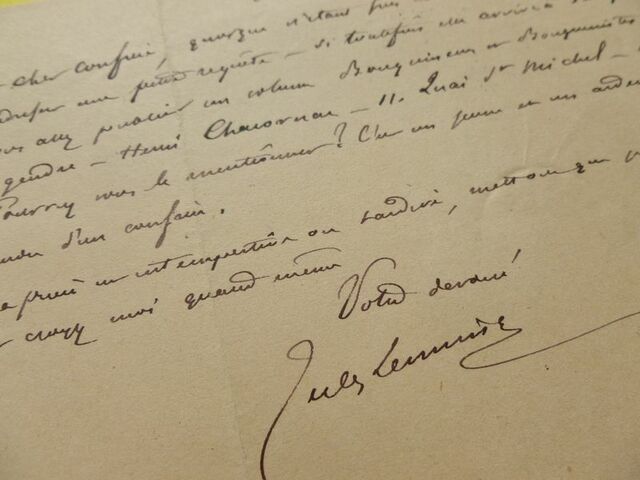 cher confrère, quoique n'étant pas
une petite requête - si toutefois elle arrive à
vous allez publier un volume Bouquineurs et Bouquinistes
gendre - Henri Chacornac - 11. Quai St Michel -
Pourrez vous le mentionner? C'est un jeune et un arden
d'un confrère.
prière est intempestive ou tardive, mettons que
croyez moi quand même
Votre dévoué
Jules Lermina